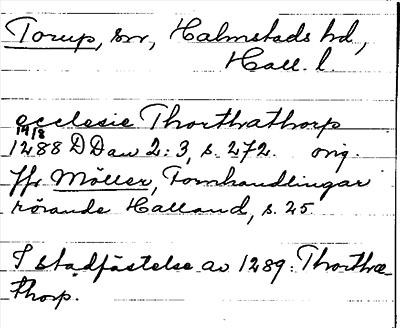 Torup, sn, Halmstads hd,
Hall. l.
ecclesie Thorthathorp
14/8
1288 DDan 2:3, s. 272. orig.
Jfr Möller, Fornhandlingar
rörande Halland, s. 25
I stadfästelse av 1289: Thorthæ-
thorp.